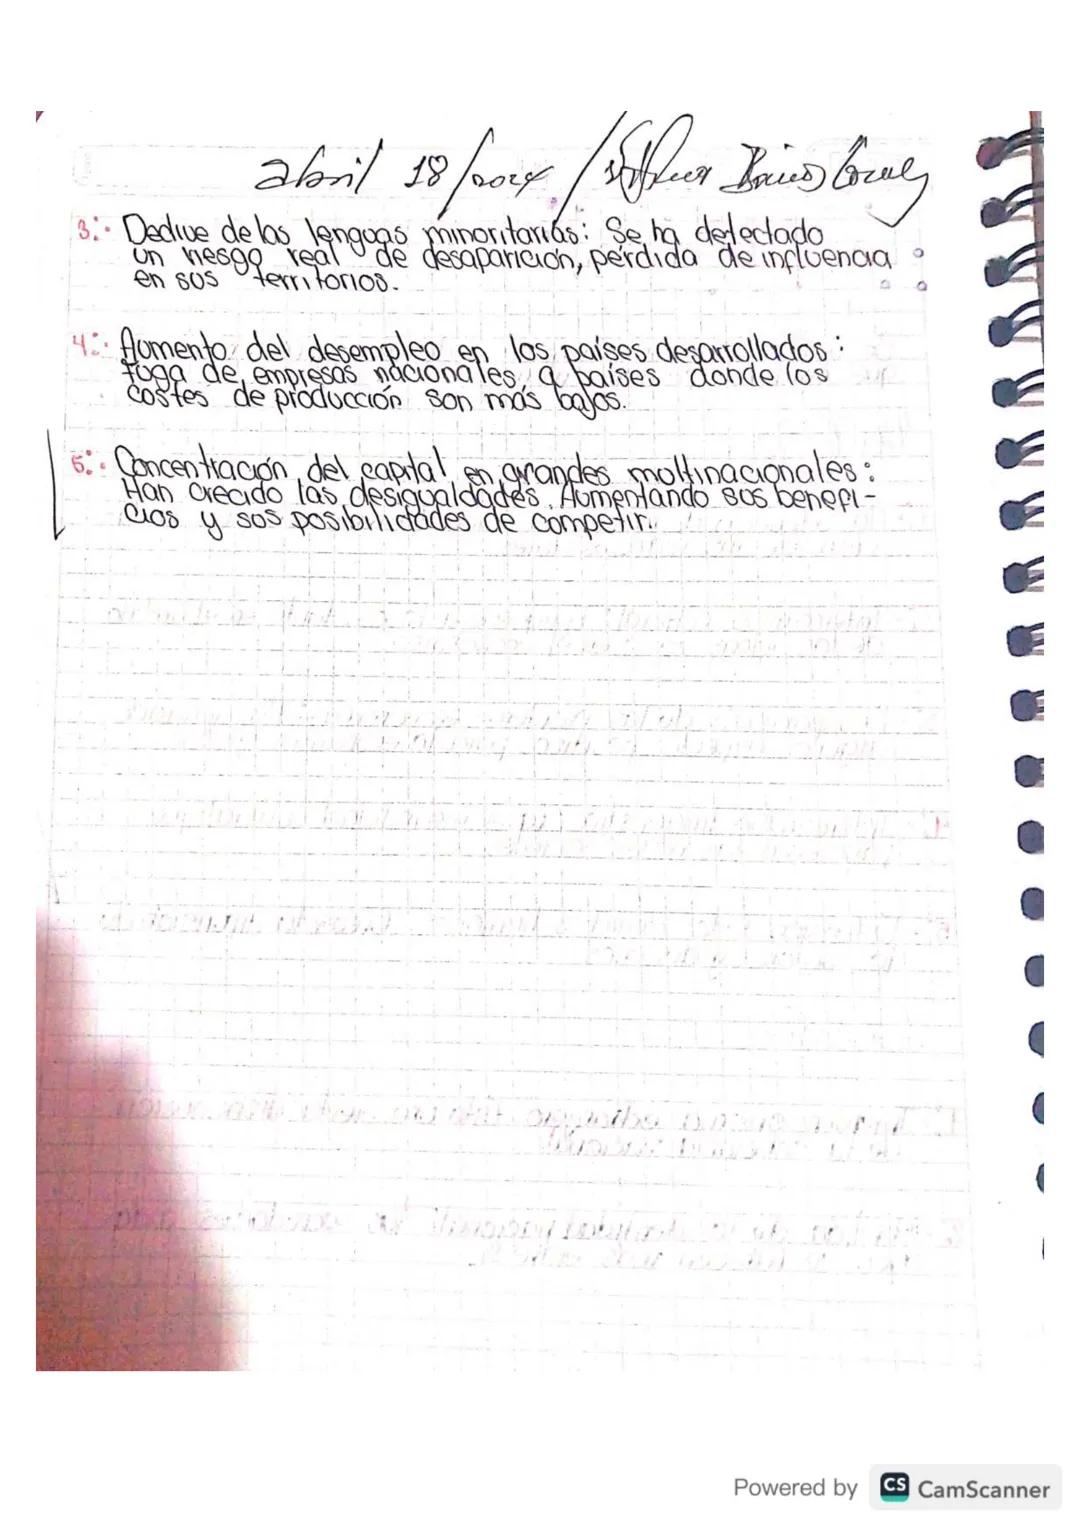 abril 18/2024/
3:· Declive de las lenguas minoritarias: Se ha detectado
un riesgo real de desaparición, pérdida de influencia
en sus territorios.
4:· Aumento del desempleo en los países desarrollados:
fuga de empresas nacionales a países donde los
costes de producción son más bajos.
5:· Concentración del capital en grandes multinacionales:
Han crecido las desigualdades. Aumentando sus benefi-
cios y sus posibilidades de competir.
Powered by CS CamScanner